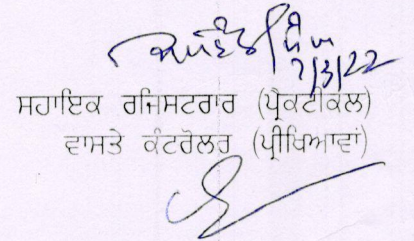 7/3/22
ਸਹਾਇਕ ਰਜਿਸਟਰਾਰ (ਪ੍ਰੈਕਟੀਕਲ)
ਵਾਸਤੇ ਕੰਟਰੋਲਰ (ਪ੍ਰੀਖਿਆਵਾਂ)